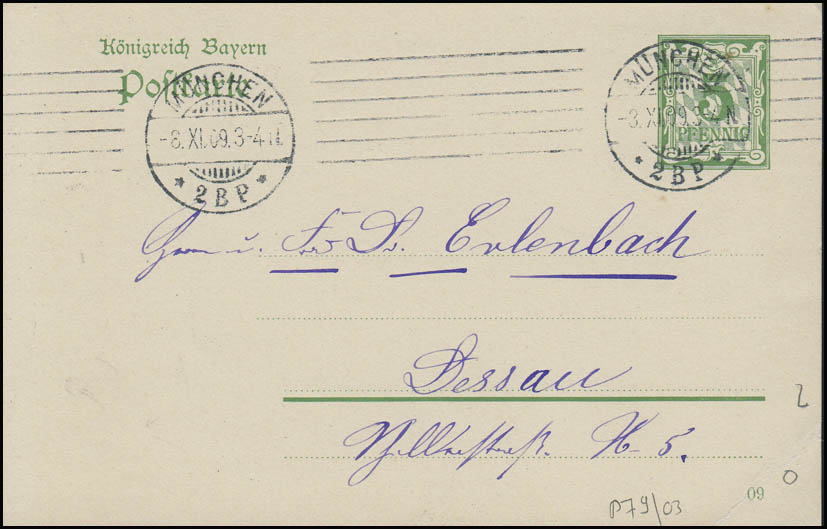 Königreich Bayern
Postkarte
MÜNCHEN
-8. XI. 09. 3-4 N.
* 2 B P *
MÜNCHEN
-8. XI. 09. 3-4 N.
* 2 B P *
5
PFENNIG
Herrn u. Fr. Dr. Erlenbach
Dessau
5.
09
P79/03
2
0